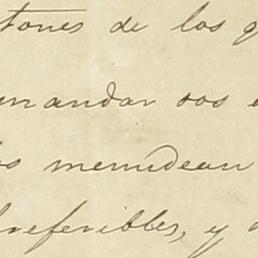 tones de los q
mandar sos
os menudean
referibles, y